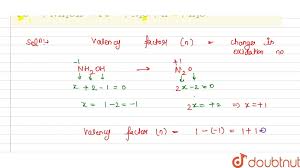 Solⁿ:- Valency factor (n) = change in oxidation no
-1 +1
NH₂OH → N₂O
x + 2 - 1 = 0 2x - 2 = 0
x = 1 - 2 = -1 2x = +2 ⇒ x = +1
Valency factor (n) = 1 - (-1) = 1 + 1
doubtnut